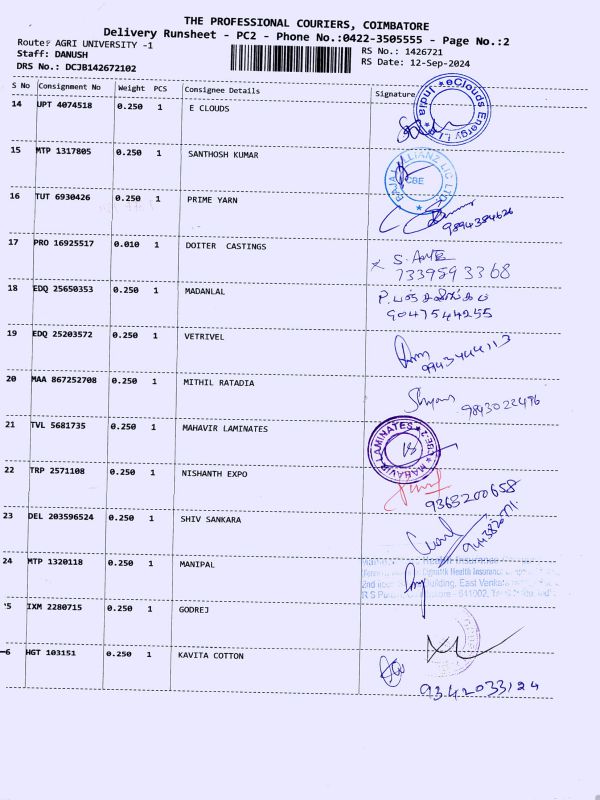 THE PROFESSIONAL COURIERS, COIMBATORE
Delivery Runsheet - PC2 - Phone No.:0422-3505555 - Page No.:2
Route: AGRI UNIVERSITY -1
RS No.: 1426721
Staff: DANUSH
RS Date: 12-Sep-2024
DRS No.: DCJB142672102
S No Consignment No Weight PCS Consignee Details Signature
14 UPT 4074518 0.250 1 E CLOUDS
eClouds Energy
15 MTP 1317805 0.250 1 SANTHOSH KUMAR
BAJAJ ALLIANZ LIC LTD
CBE
16 TUT 6930426 0.250 1 PRIME YARN
9894384626
17 PRO 16925517 0.010 1 DOITER CASTINGS
7339593368
18 EDQ 25650353 0.250 1 MADANLAL
9047544255
19 EDQ 25203572 0.250 1 VETRIVEL
9943444113
20 MAA 867252708 0.250 1 MITHIL RATADIA
9843022496
21 TVL 5681735 0.250 1 MAHAVIR LAMINATES
MAHAVIR LAMINATES
22 TRP 2571108 0.250 1 NISHANTH EXPO
9363200658
23 DEL 203596524 0.250 1 SHIV SANKARA
24 MTP 1320118 0.250 1 MANIPAL
Health Insurance
Health Insurance
2nd Building, East
R S - 641002,
25 IXM 2280715 0.250 1 GODREJ
6 HGT 103151 0.250 1 KAVITA COTTON
9342033124